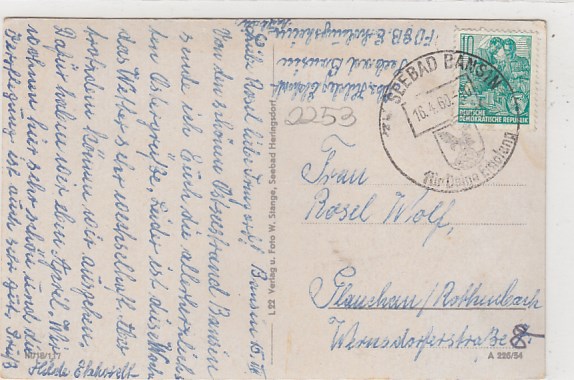 Bansin 15. IV.
Liebe Rosel, lieber
Von dem schönen Ostseestrand Bansin
sende ich Euch die allerherzlich-
sten Ostergrüße. Leider ist das
das Wetter sehr wechselhaft. Aber
trotzdem können wir ausgehen.
Dafür haben wir eben April. Wir
wohnen hier sehr schön und die
Verpflegung ist auch sehr gut.
Hilde
FDGB Erholungsheim
Seebad Bansin
SEEBAD BANSIN
16.4.60
für Deine Erholung
10
DEUTSCHE
DEMOKRATISCHE REPUBLIK
2253
Frau
Rosel Wolf,
Glauchau/Rothenbach
Wernsdorferstraße 8
L 22 Verlag u. Foto W. Stange, Seebad Heringsdorf
A 226/54